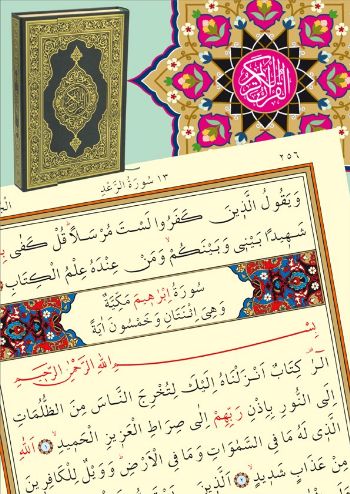 القرآن الكريم
٢٥٦
١٣ سُورَةُ الرَّعْدِ
وَيَقُولُ الَّذِينَ كَفَرُوا لَسْتَ مُرْسَلًا قُلْ كَفٰى
شَهِيدًا بَيْنِى وَبَيْنَكُمْ وَمَنْ عِنْدَهُ عِلْمُ الْكِتَابِ
سُورَةُ اِبْرٰهِيمَ مَكِّيَّةٌ
وَهِىَ اِثْنَتَانِ وَخَمْسُونَ اٰيَةً
بِسْمِ اللّٰهِ الرَّحْمٰنِ الرَّحِيمِ
الٓرٰ كِتَابٌ اَنْزَلْنَاهُ اِلَيْكَ لِتُخْرِجَ النَّاسَ مِنَ الظُّلُمَاتِ
اِلَى النُّورِ بِاِذْنِ رَبِّهِمْ اِلٰى صِرَاطِ الْعَزِيزِ الْحَمِيدِ ١ اَللّٰهِ
الَّذِى لَهُ مَا فِى السَّمٰوَاتِ وَمَا فِى الْاَرْضِ وَوَيْلٌ لِلْكَافِرِينَ
مِنْ عَذَابٍ شَدِيدٍ ٢ اَلَّذِينَ